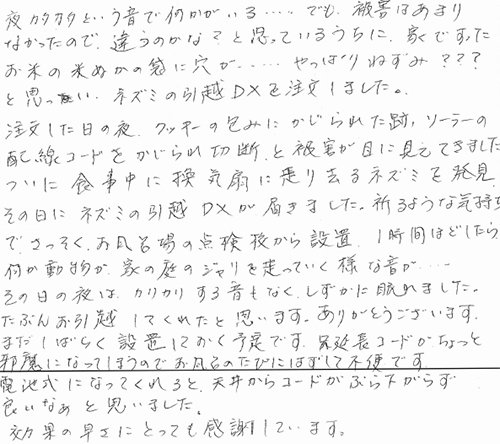 夜カタカタという音で何かがいる……でも、被害はあまり
なかったので、違うのかな？と思っているうちに、家でずった
お米の米ぬかの袋に穴が……やっぱりねずみ？？？
と思い、ネズミの引越DXを注文しました。
注文した日の夜、クッキーの包みにかじられた跡、ソーラーの
配線コードをかじられ切断、と被害が目に見えてきました
ついに食事中に換気扇に走り去るネズミを発見
その日にネズミの引越DXが届きました。祈るような気持ち
で、さっそく、お風呂場の点検校から設置、1時間ほどしたら
何か動物が、家の庭のジャリを走っていく様な音が……
その日の夜は、カリカリする音もなく、しずかに眠れました。
たぶんお引越してくれたと思います。ありがとうございます。
まだしばらく設置しておく予定です。延長コードがちょっと
邪魔になってしまうのでお風呂のたびにはずして不便です。
電池式になってくれると、天井からコードがぶら下がらず
良いなぁと思いました。
効果の早さにとっても感謝しています。